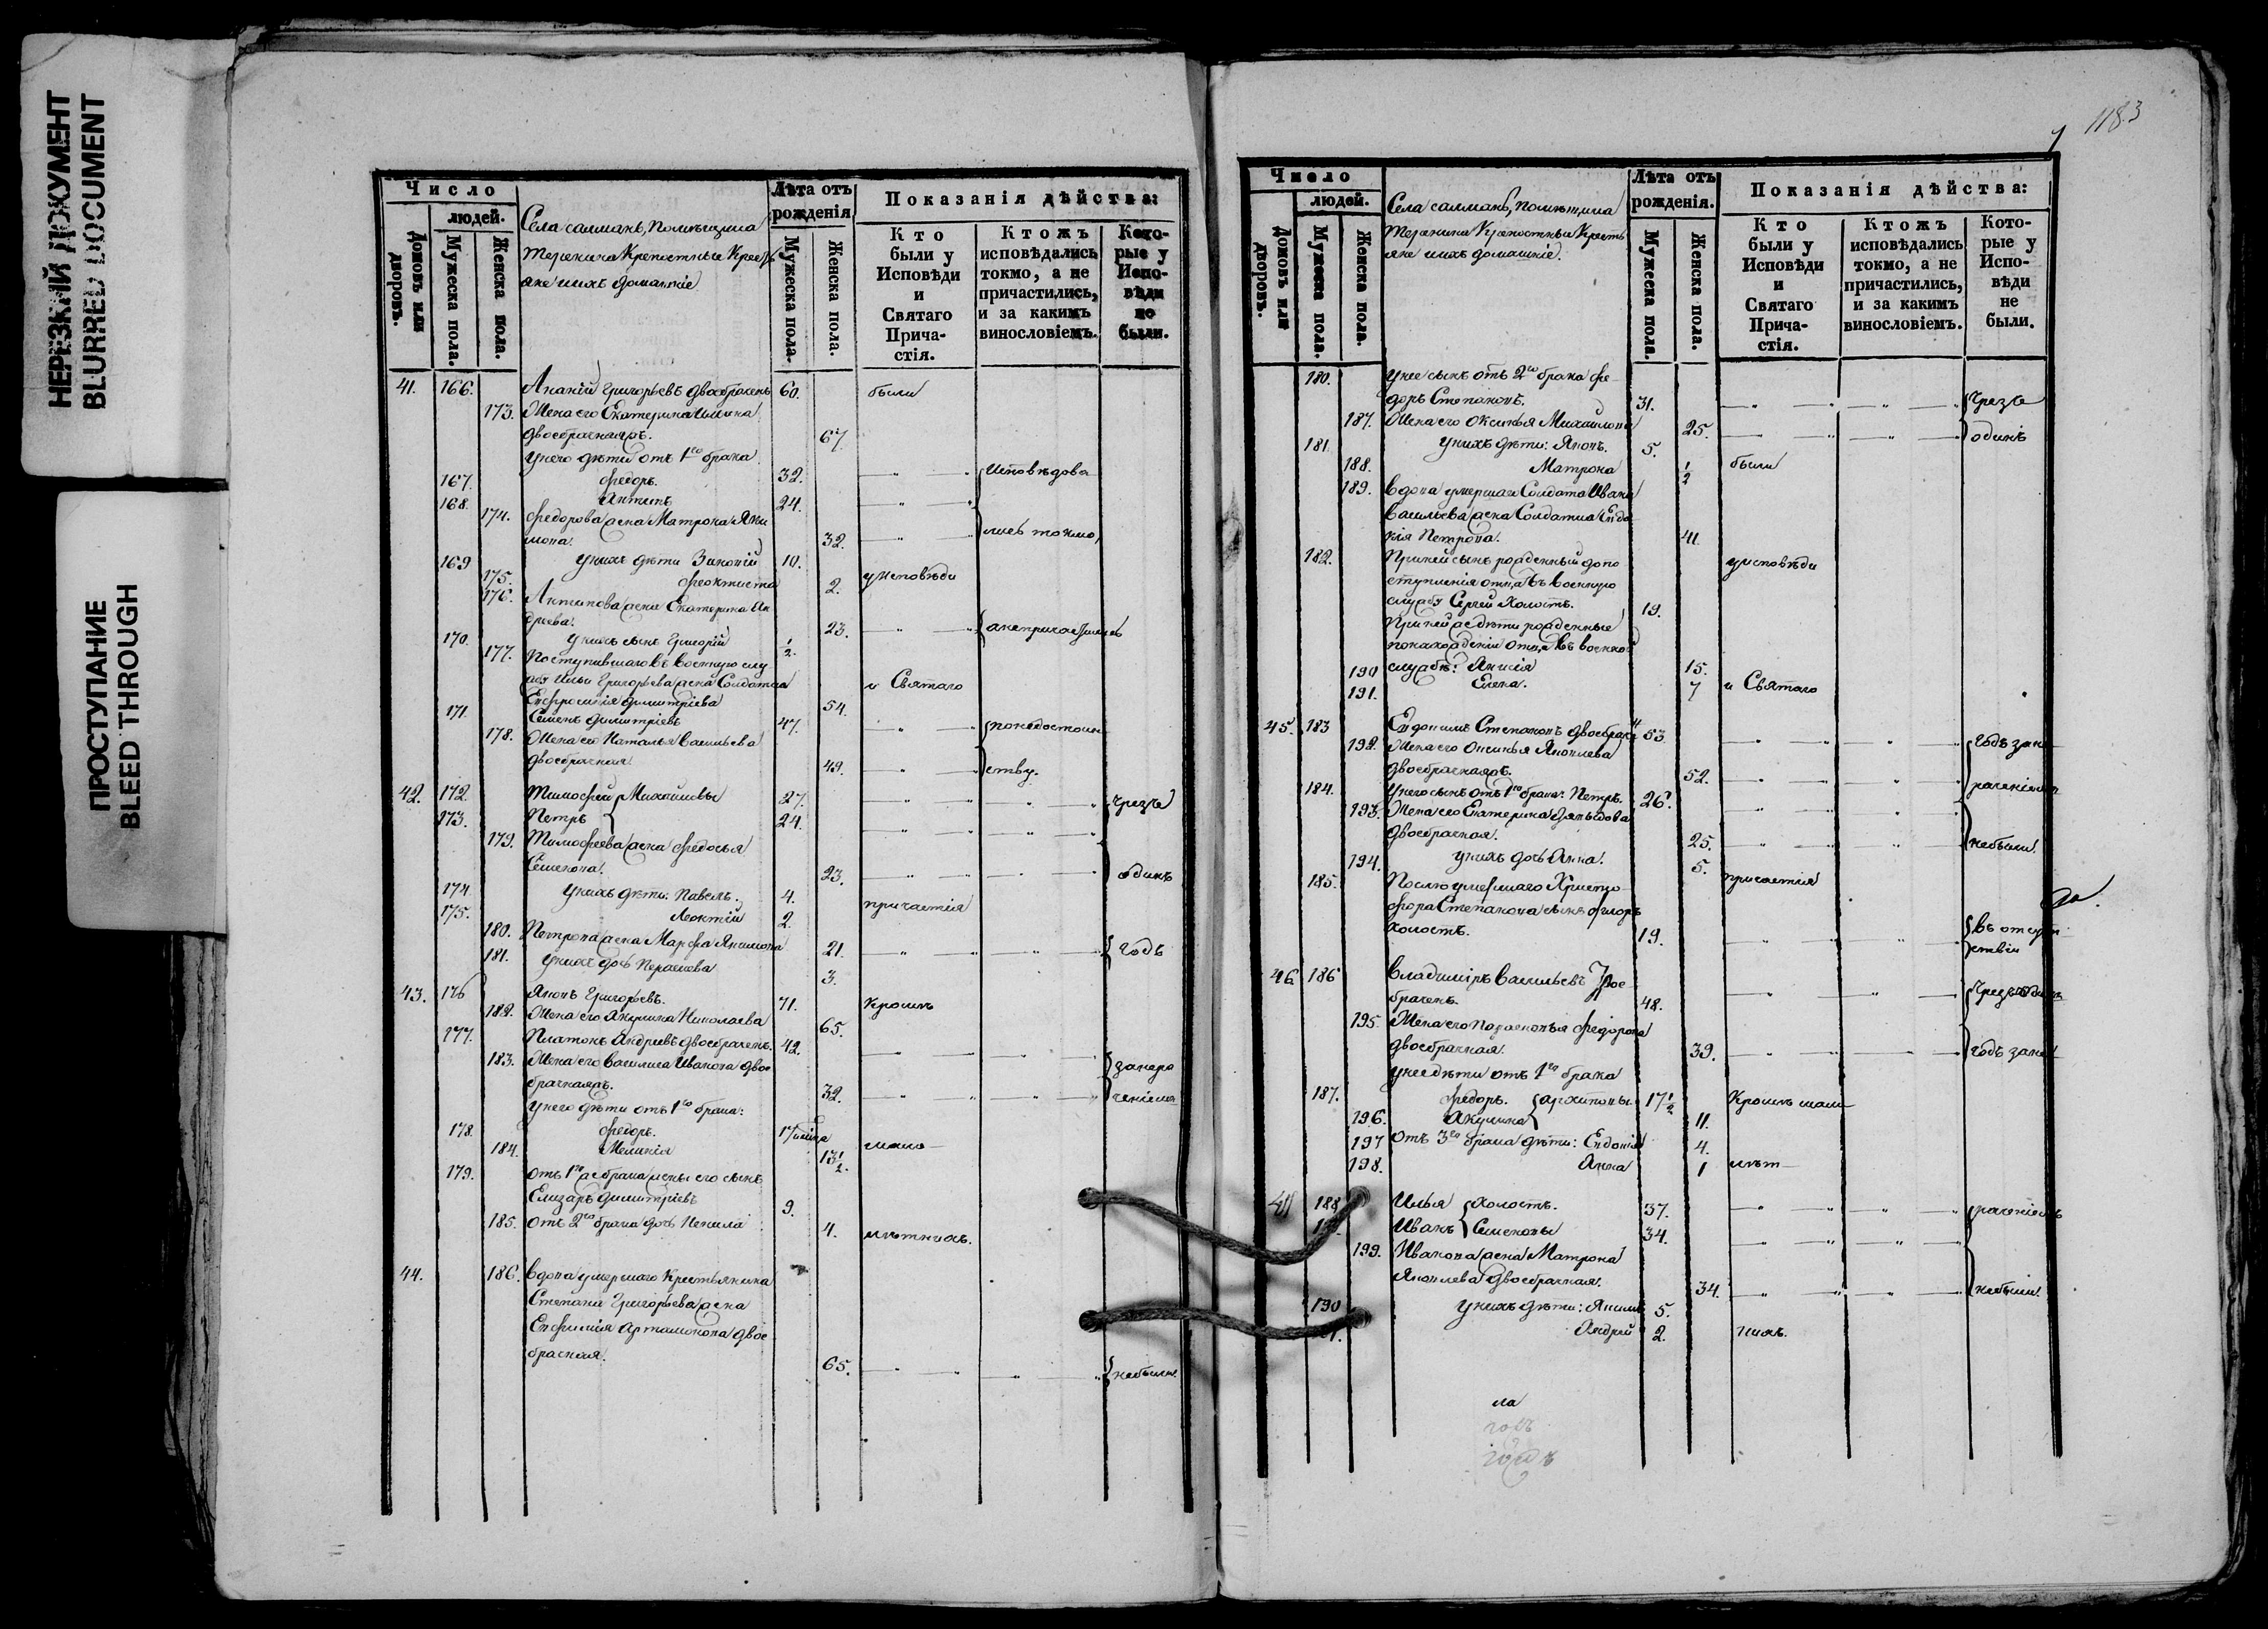 НЕРЕЗКИЙ ДОКУМЕНТ
BLURRED DOCUMENT
ПРОСТУПАНИЕ
BLEED THROUGH
Число
людей.
Домовъ или дворовъ.
Мужеска пола.
Женска пола.
Села салманъ, Помѣщика
Теренина Крепостные Кресть
яне ихъ домашніе
Лѣта отъ рожденія
Мужеска пола.
Женска пола.
Показанія дѣйства:
Кто были у Исповѣди и Святаго Прича-стія.
Ктожъ исповѣдались токмо, а не причастились, и за какимъ винословіемъ.
Кото-рые у Испо-вѣди не были.
41. 166. Ананій Григорьевъ двоебраченъ 60. были
173. Жена его Екатерина
двоебрачная. 67.
У него дѣти отъ 1го брака
167. Федоръ. 32. Исповѣдова
168. Антипъ 24.
174. Федорова жена Матрона Яки
мова. 32. лись токмо,
169 У нихъ дѣти Зиновій 10.
175. Феоктиста 2. у исповѣди
176. Антипова жена Екатерина Ан
дреева. 23. а не причастились
170. У нихъ сынъ Григорій 1/2.
177. Поступившаго въ военную слу
жбу Ильи Григорьева жена Солдатка и Святаго
Евфросинія Димитріева 54.
171. Семенъ Димитріевъ 47. по недостоин
178. Жена его Наталья Васильева
двоебрачная 49. ству.
42. 172. Тимофей Михайловы 27. Чрезъ
173. Петръ 24.
179. Тимофеева жена Федосья
Семенова. 23. одинъ
174. У нихъ дѣти: Павелъ. 4. причастія
175. Леонтій 2.
180. Петрова жена Марфа Якимова 21. годъ
181. У нихъ дочь Парасковея 3.
43. 176 Яковъ Григорьевъ. 71. Кромѣ
182. Жена его Акулина Николаева 65.
177. Платонъ Андреевъ двоебраченъ. 42.
183. Жена его Василиса Иванова двое занера
брачная. 32. ченіемъ
У него дѣти отъ 1го брака:
178. Федоръ. 17
184. Меланія 13 1/2. мало
179. Отъ 1го жебрака жены его сынъ
Елизаръ Димитріевъ 9.
185. Отъ 2го брака дочь Ненила 4. лѣтнихъ.
44. 186. Вдова умершаго Крестьянина
Степана Григорьева жена
Евфимія Артамонова двое
брачная. 65. небыли.
1183
Число
людей.
Домовъ или дворовъ.
Мужеска пола.
Женска пола.
Села салманъ, Помѣщика
Теренина Крепостные Кресть
яне ихъ домашніе.
Лѣта отъ рожденія.
Мужеска пола.
Женска пола.
Показанія дѣйства:
Кто были у Исповѣди и Святаго Прича-стія.
Ктожъ исповѣдались токмо, а не причастились, и за какимъ винословіемъ.
Кото-рые у Испо-вѣди не были.
180. У нее сынъ отъ 2го брака Фе
доръ Степановъ. 31. Чрезъ
187. Жена его Оксинья Михайлова 25. одинъ
181 У нихъ дѣти: Яковъ. 5.
188. Матрона 1/2 были
189. Вдова умершаго Солдата Ивана
Васильева жена Солдатка Евдо
кія Петрова. 41.
182. При ней сынъ рожденный до по у исповѣди
ступленія отца въ военную
службу Сергей Холостъ. 19.
При ней же дѣти рожденные
по нахожденіи отца въ военной
190 службѣ: Анисія 15.
191. Елена. 7 и Святаго
45. 183 Евдокимъ Степановъ двоебрач 53. годъ зане
192. Жена его Аксинья Яковлева
двоебрачная. 52. раченіемъ
184. У него сынъ отъ 1го брака Петръ. 26.
193. Жена его Екатерина Давыдова
двоебрачная. 25. небыли.
194. У нихъ дочь Анна. 5.
185. После умершаго Христо причастія
фора Степанова сынъ Фаларъ
холостъ. 19. въ отсут
ствіи
46. 186 Владиміръ Васильевъ Двое
браченъ. 48. Чрезъ одинъ
195. Жена его Парасковья Федорова
двоебрачная. 39. годъ зане
У нее дѣти отъ 1го брака
187. Федоръ. Архиповы. 17 1/2 Кромѣ мало
196. Акулина 11.
197 Отъ 3го брака дѣти: Евдокія 4.
198. Анна 1 лѣт
47 188 Илья Холостъ. 37. раченіемъ
Иванъ Семеновы 34.
199. Иванова жена Матрона
Яковлева двоебрачная. 34. небыли.
190 У нихъ дѣти: Якимъ 5.
Андрей 2. нихъ.
ла
годъ
годъ